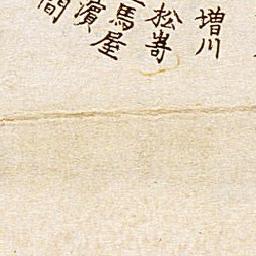 増川
松嵜
馬屋
濱
間